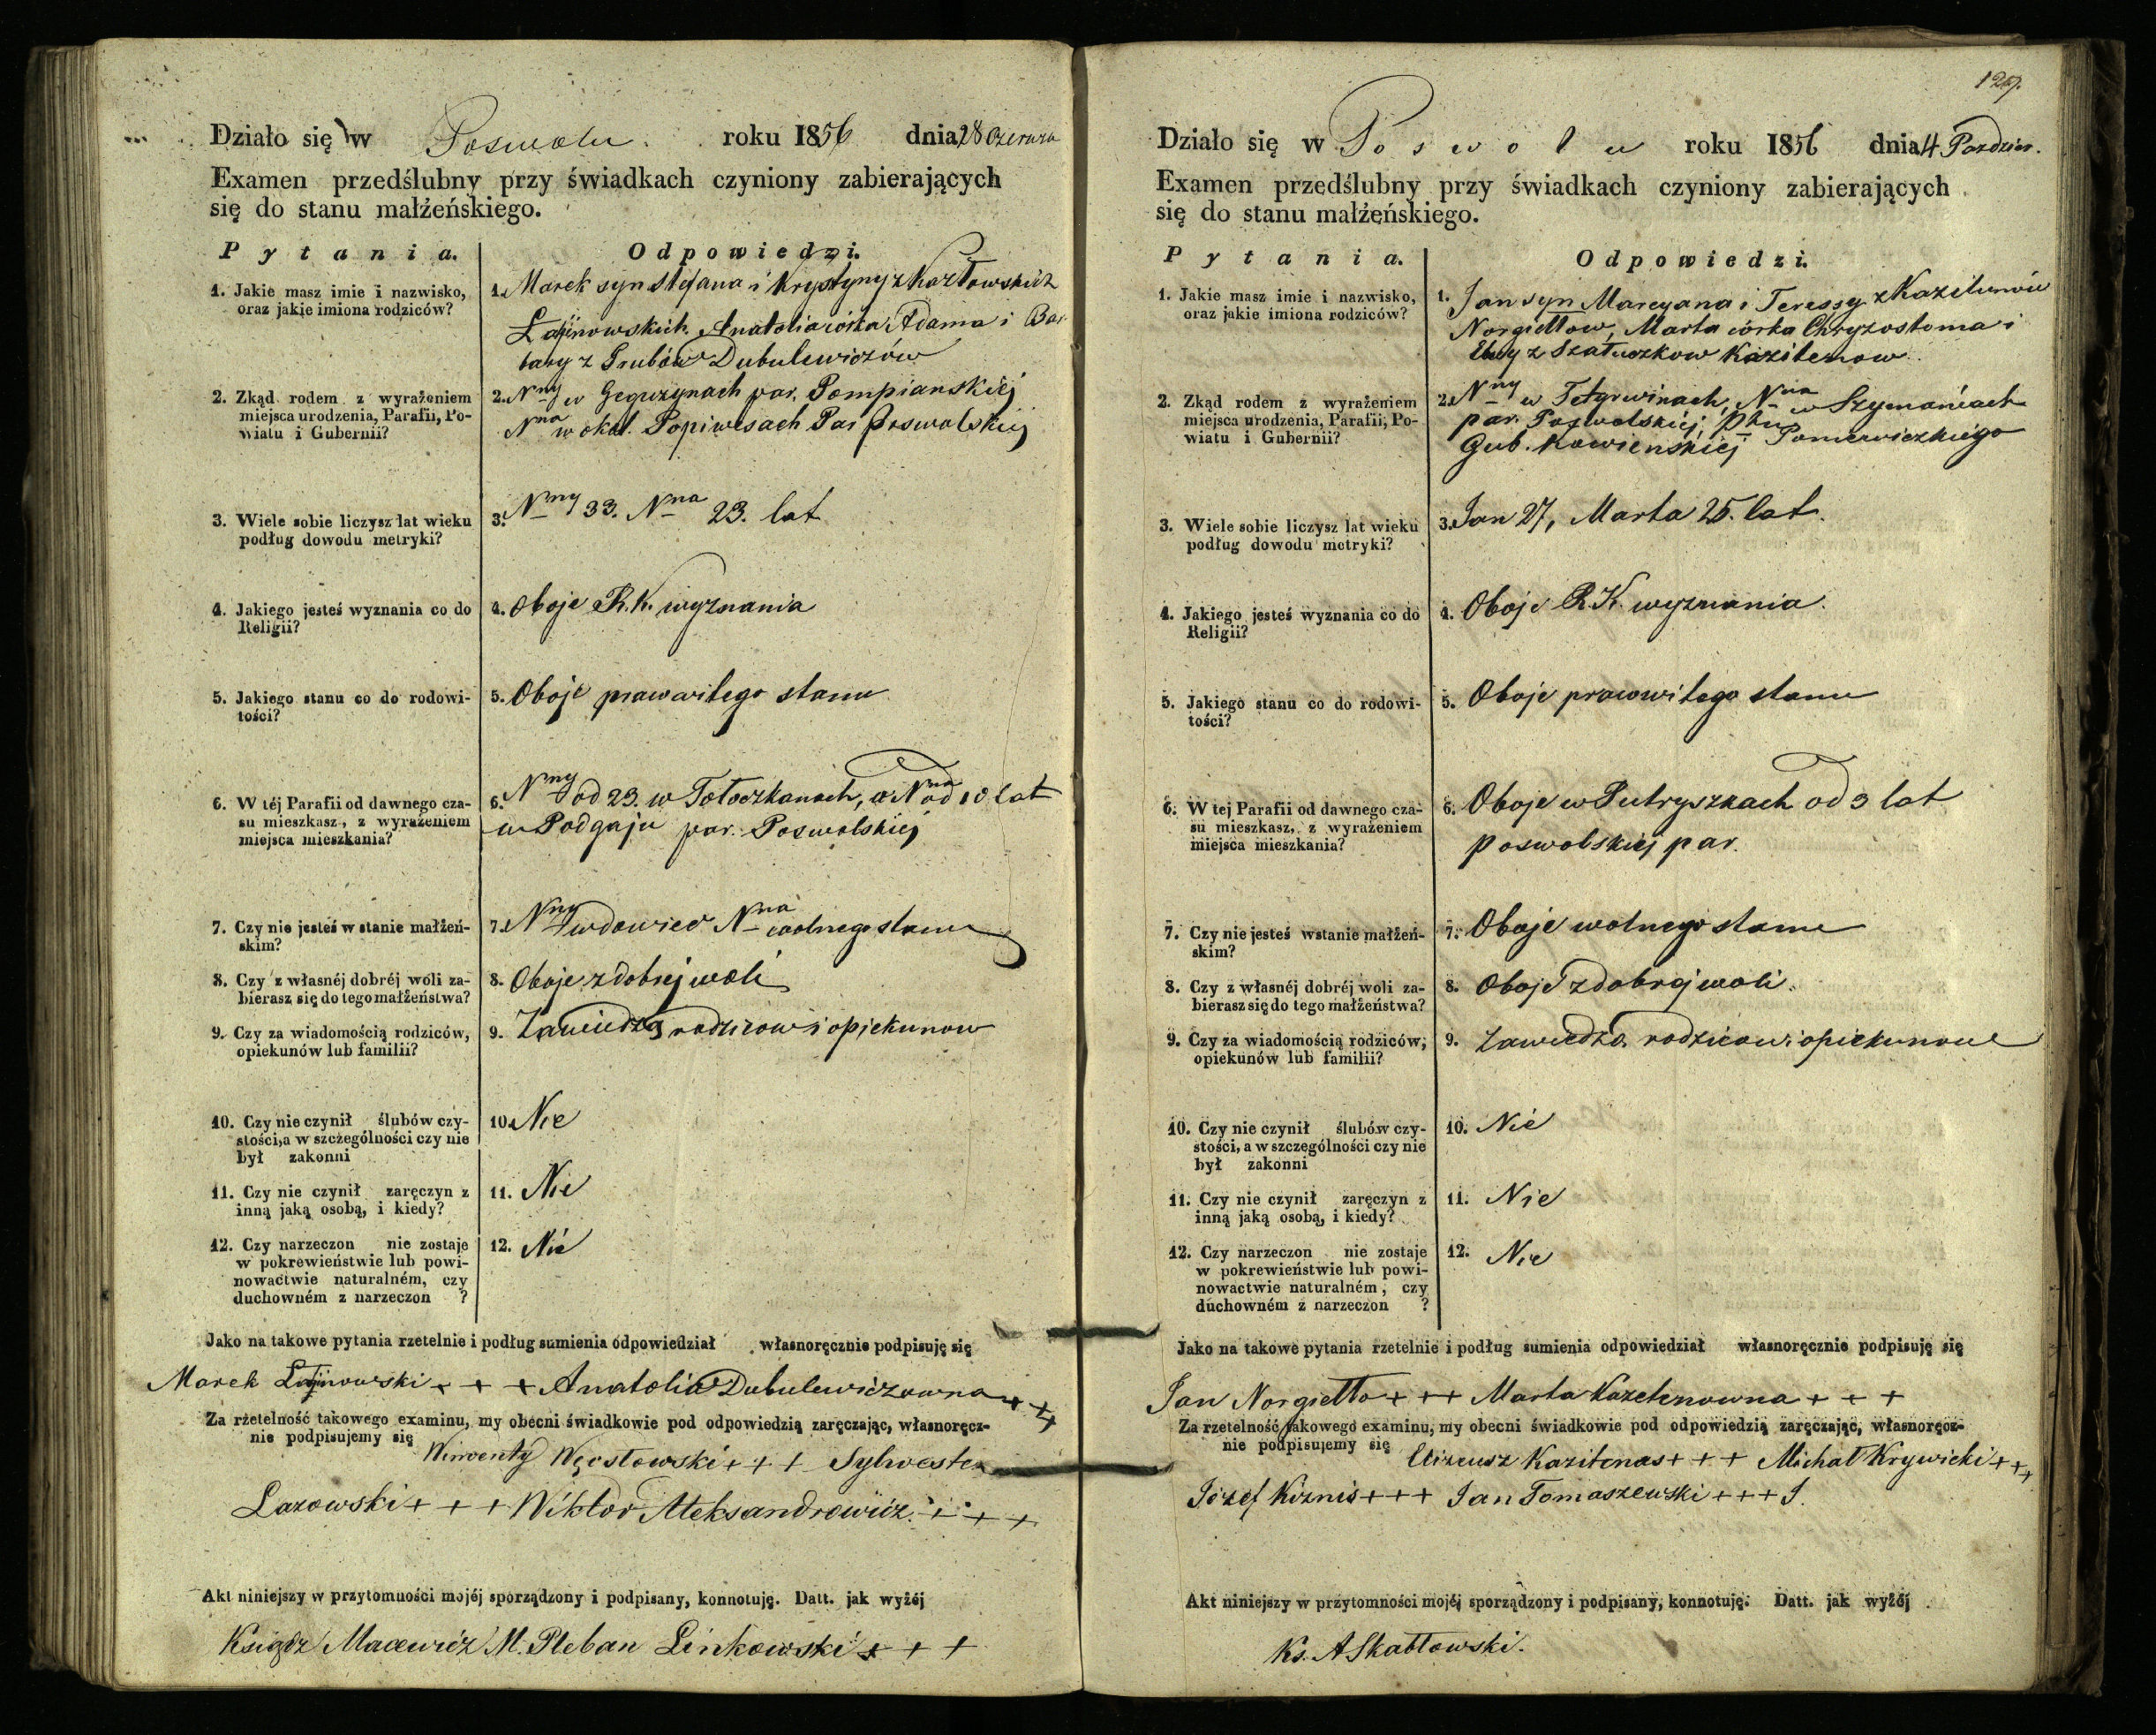 Działo się w Poswolu. roku 1856 dnia 28 Czerwca
Examen przedślubny przy świadkach czyniony zabierających
się do stanu małżeńskiego.
Pytania. Odpowiedzi.
1. Jakie masz imie i nazwisko,
oraz jakie imiona rodziców?
1. Marek syn Stefana i Krystyny z Kozłowskich
Łajinowskich. Anatolia córka Adama i Bar
bary z Grubów Dubulewiczów
2. Zkąd rodem z wyrażeniem
miejsca urodzenia, Parafii, Po-
wiatu i Gubernii?
2. Nny w Gegużynach par. Pompianskiej
Nna w okol. Popiwesach Par Poswolskiej
3. Wiele sobie liczysz lat wieku
podług dowodu metryki?
3. Nny 33. Nna 23. lat
4. Jakiego jesteś wyznania co do
Religii?
4. Oboje R. K. wyznania
5. Jakiego stanu co do rodowi-
tości?
5. Oboje prawowitego stanu
6. W téj Parafii od dawnego cza-
su mieszkasz, z wyrażeniem
miejsca mieszkania?
6. Nny od 23. w Tołoczkanach, a Nna od 10 lat
w Podgaju par. Poswolskiej
7. Czy nie jesteś w stanie małżeń-
skim?
7. Nny wdowiec Nna wolnego stanu
8. Czy z własnéj dobréj woli za-
bierasz się do tego małżeństwa?
8. Oboje z dobrej woli
9. Czy za wiadomością rodziców,
opiekunów lub familii?
9. Zawiedzą rodzicow i opiekunow
10. Czy nie czynił ślubów czy-
stości, a w szczególności czy nie
był zakonni
10. Nie
11. Czy nie czynił zaręczyn z
inną jaką osobą, i kiedy?
11. Nie
12. Czy narzeczon nie zostaje
w pokrewieństwie lub powi-
nowactwie naturalném, czy
duchowném z narzeczon ?
12. Nie
Jako na takowe pytania rzetelnie i podług sumienia odpowiedział własnoręcznie podpisuję się
Marek Łajinowski + + + Anatolia Dubulewiczowna + + +
Za rzetelność takowego examinu, my obecni świadkowie pod odpowiedzią zaręczając, własnoręcz-
nie podpisujemy się Wincenty Węcsłowski + + + Sylwester
Lazowski + + + Wiktor Aleksandrowicz. + + +
Akt niniejszy w przytomności mojéj sporządzony i podpisany, konnotuję. Datt. jak wyżéj
Ksiądz Macewicz M. Pleban Linkowski + + +
129.
Działo się w Poswolu roku 1856 dnia 4 Pazdzier.
Examen przedślubny przy świadkach czyniony zabierających
się do stanu małżeńskiego.
Pytania. Odpowiedzi.
1. Jakie masz imie i nazwisko,
oraz jakie imiona rodziców?
1. Jan syn Marcyana i Teressy z Kazilunów
Norgiełłow, Marta córka Chryzostoma i
Ewy z Szałuczkow Kazitenow.
2. Zkąd rodem z wyrażeniem
miejsca urodzenia, Parafii, Po-
wiatu i Gubernii?
2. Nny w Tetyrwinach, Nna w Szymańcach
par. Poswolskiéj, Ptu Poniewiezkiego
Gub. Kowienskiej
3. Wiele sobie liczysz lat wieku
podług dowodu metryki?
3. Jan 27, Marta 25. lat.
4. Jakiego jesteś wyznania co do
Religii?
4. Oboje R. K. wyznania.
5. Jakiego stanu co do rodowi-
tości?
5. Oboje prawowitego stanu
6. W tej Parafii od dawnego cza-
su mieszkasz, z wyrażeniem
miejsca mieszkania?
6. Oboje w Putryszkach od 3 lat
poswolskiej par.
7. Czy nie jesteś wstanie małżeń-
skim?
7. Oboje wolnego stanu
8. Czy z własnéj dobréj woli za-
bierasz się do tego małżeństwa?
8. Oboje z dobrej woli.
9. Czy za wiadomością rodziców,
opiekunów lub familii?
9. Zawiedzą rodzicow i opiekunow
10. Czy nie czynił ślubów czy-
stości, a w szczególności czy nie
był zakonni
10. Nie
11. Czy nie czynił zaręczyn z
inną jaką osobą, i kiedy?
11. Nie
12. Czy narzeczon nie zostaje
w pokrewieństwie lub powi-
nowactwie naturalném, czy
duchowném z narzeczon ?
12. Nie
Jako na takowe pytania rzetelnie i podług sumienia odpowiedział własnoręcznie podpisuję się
Jan Norgiełło + + + Marta Kazetenowna + + +
Za rzetelność takowego examinu, my obecni świadkowie pod odpowiedzią zaręczając, własnoręcz-
nie podpisujemy się Elizeusz Kazitenas + + + Michał Krywicki + + +
Józef Kiznis + + + Jan Tomaszewski + + + J.
Akt niniejszy w przytomności mojéj sporządzony i podpisany, konnotuję. Datt. jak wyżéj
Ks. A Skabłowski.